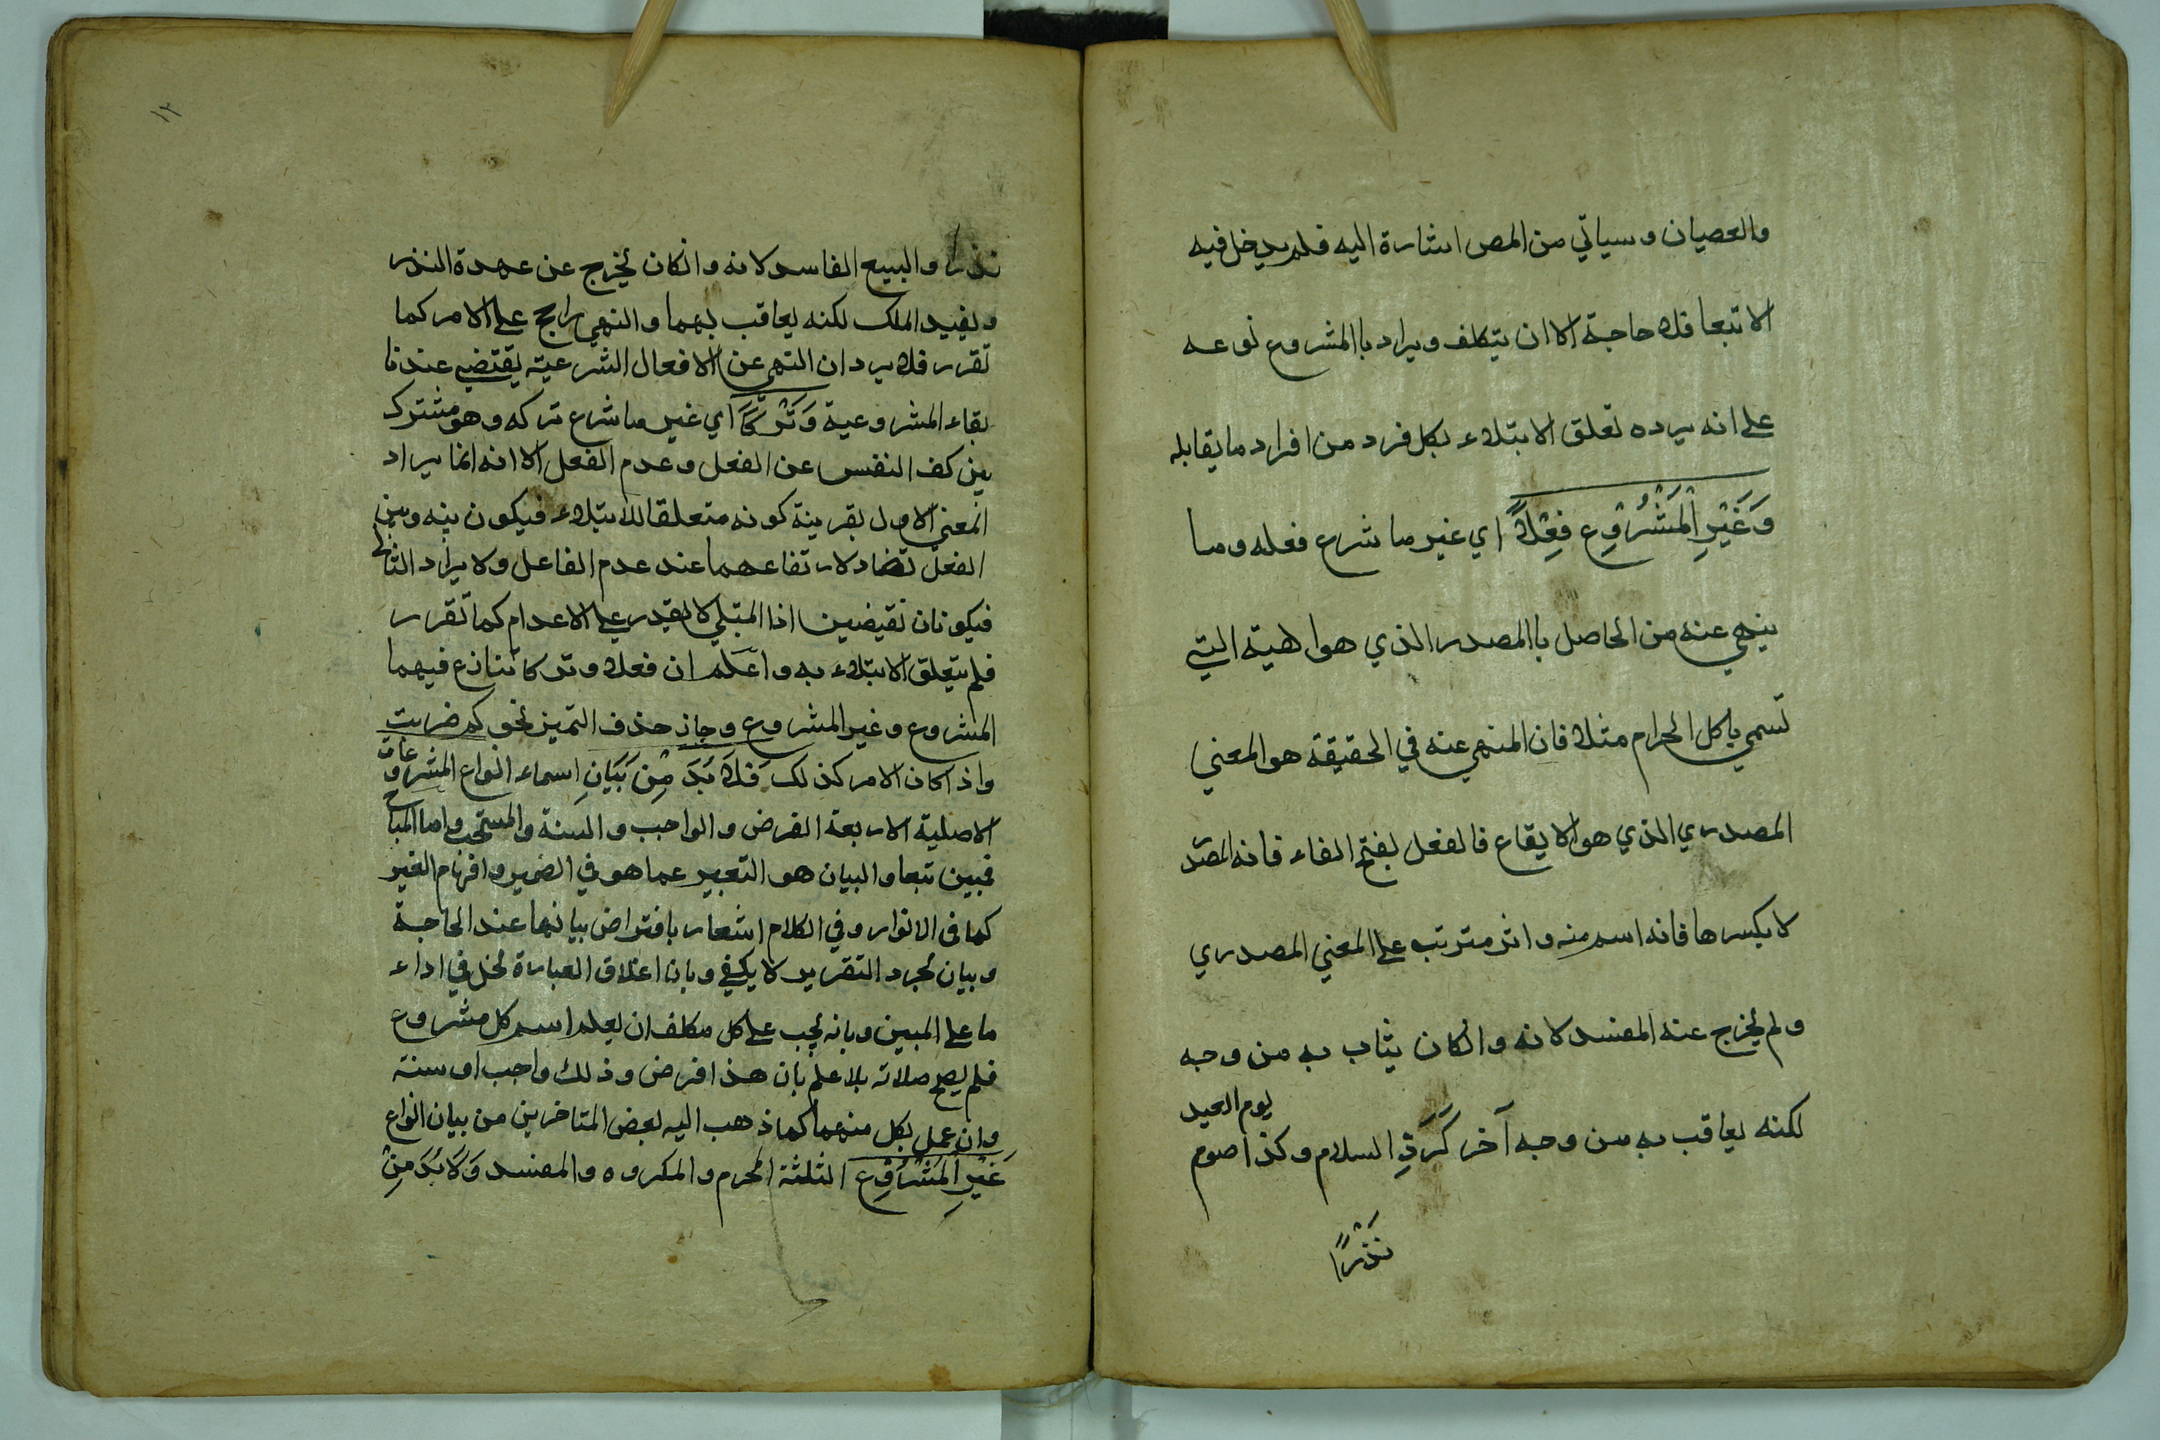 والعصيان وسياتي من المص اشارة اليه فلم يدخل فيه
الا تبعا فلا حاجة الا ان يتكلف ويراد باالمشروع نوعه
على انه يرده تعلق الابتلاء بكل فرد من افراد ما يقابله
وَغَيْرِ الْمَشْرُوْعِ فِعْلًا اي غير ما شرع فعله وما
ينهي عنه من الحاصل باالمصدر الذي هو الهيئة التي
تسمي باكل الحرام مثلا فان المنهي عنه في الحقيقة هو المعني
المصدري الذي هو الايقاع فالفعل بفتح الفاء فانه المصدر
لا بكسرها فانه اسم منه واثر مترتب على المعني المصدري
ولم يخرج عنه المفسد لانه وانكان يثاب به من وجه
لكنه يعاقب به من وجه آخر كَرَدِّ السلام وكذا صوم
يوم العيد
نَذْرًا
١٢
نذرا والبيع الفاسد لانه وانكان يخرج عن عهدة النذر
ويفيد الملك لكنه يعاقب بهما والنهي راجح على الامر كما
تقرر فلا يرد ان النهي عن الافعال الشرعية يقتضي عندنا
بقاء المشروعية وَتَرْكًا اي غير ما شرع تركه وهو مشترك
بين كف النفس عن الفعل وعدم الفعل الا انه انما يراد
المعني الاول بقرينة كونه متعلقا للابتلاء فيكون بينه وبين
الفعل تضاد لارتفاعهما عند عدم الفاعل ولا يراد الثاني
فيكونان نقيضين اذا المبتلي لا يقدر على الاعدام كما تقرر
فلم يتعلق الابتلاء به واعلم ان فعلا وتركا تنازع فيهما
المشروع وغير المشروع وجاز حذف التميز نحو كم ضربت
واذا كان الامر كذلك فَلَا بُدَّ مِنْ بَيَانِ اسماء انواع المشروعات
الاصلية الاربعة الفرض والواجب والسنة والمستحب واما المباح
فبين تبعا والبيان هو التعبير عما هو في الضمير وافهام الغير
كما في الانوار وفي الكلام اشعار بافتراض بيانها عند الحاجة
وبيان لمجرد التقرير لا يكفي وبان اغلاق العبارة لخل في اداء
ما على المبين وبانه يجب على كل مكلف ان يعلم اسم كل مشروع
فلم يصح صلاته بلا علم بان هذا فرض وذلك واجب او سنة
وان عمل بكل منهما كما ذهب اليه بعض المتاخرين من بيان انواع
غَيْرِ الْمَشْرُوْعِ الثلثة المحرم والمكروه والمفسد وَلَا بُدَّ مِنْ